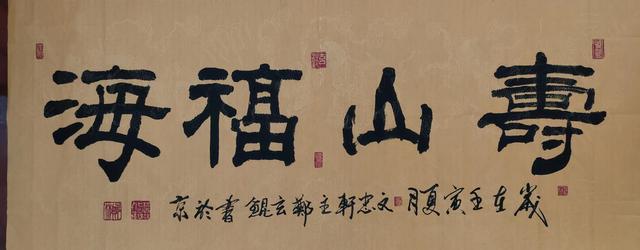 壽山福海
歲在壬寅夏月文忠軒主鄭玄鯤書於京